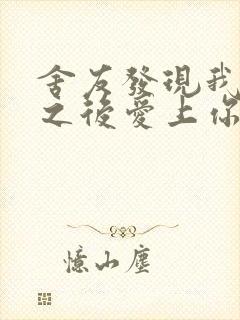 舍友發現我
之後愛上你
憶山塵